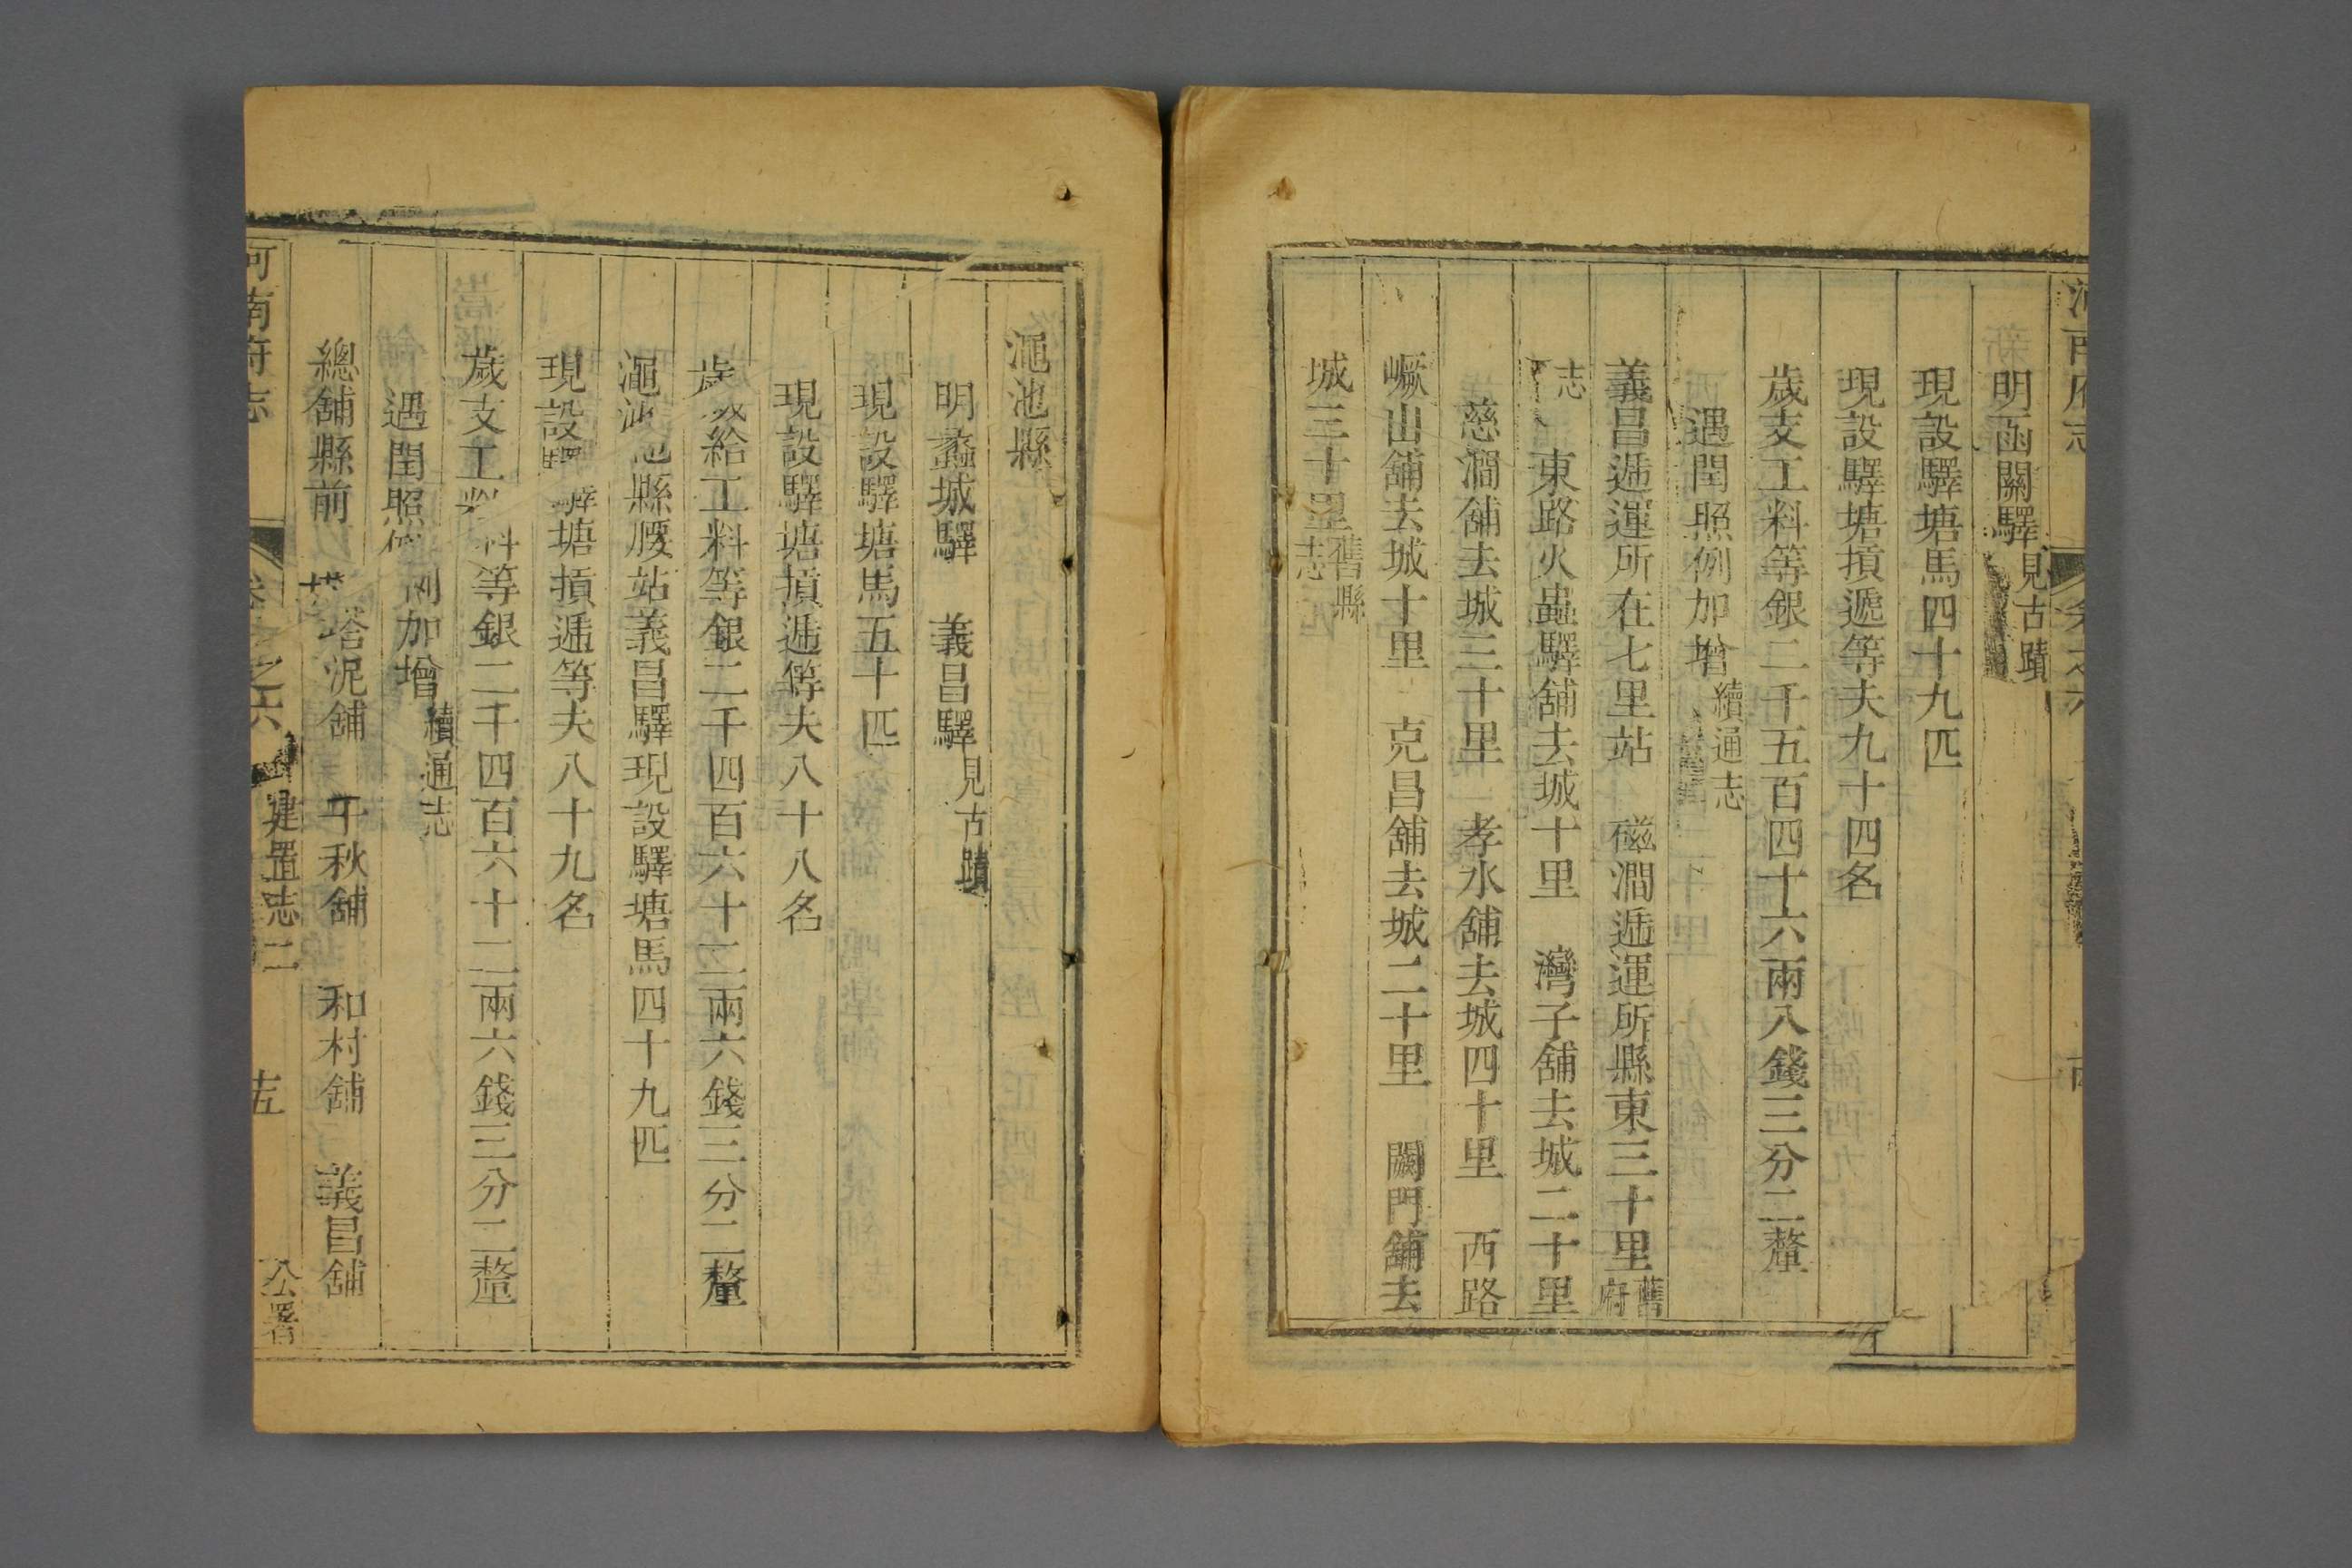 明函關驛見古蹟
現設驛塘馬四十九匹
現設驛塘摃遞等夫九十四名
歲支工料等銀二千五百四十六兩八錢三分二釐
遇閏照例加增續通志
義昌遞運所在七里站　磁澗遞運所縣東三十里舊府
志　東路火蟲驛舖去城十里　灣子舖去城二十里
慈澗舖去城三十里　孝水舖去城四十里　西路
嶡山舖去城十里　克昌舖去城二十里　闕門舖去
城三十里舊縣志
澠池縣
明蠡城驛　義昌驛見古蹟
現設驛塘馬五十匹
現設驛塘摃遞等夫八十八名
歲給工料等銀二千四百六十二兩六錢三分二釐
澠池縣腰站義昌驛現設驛塘馬四十九匹
現設驛塘摃遞等夫八十九名
歲支工料等銀二千四百六十二兩六錢三分二釐
遇閏照例加增續通志
總舖縣前　塔泥舖　千秋舖　和村舖　義昌舖
河南府志　卷之六　建置志二　公署　十五